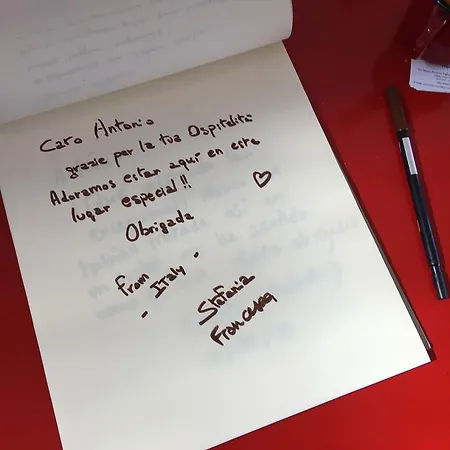 Caro Antonio
grazie per la tua Ospitalità
Adoramos estar aqui en este
lugar especial!!
Obrigada
from
- Italy -
Stefania
Francesca